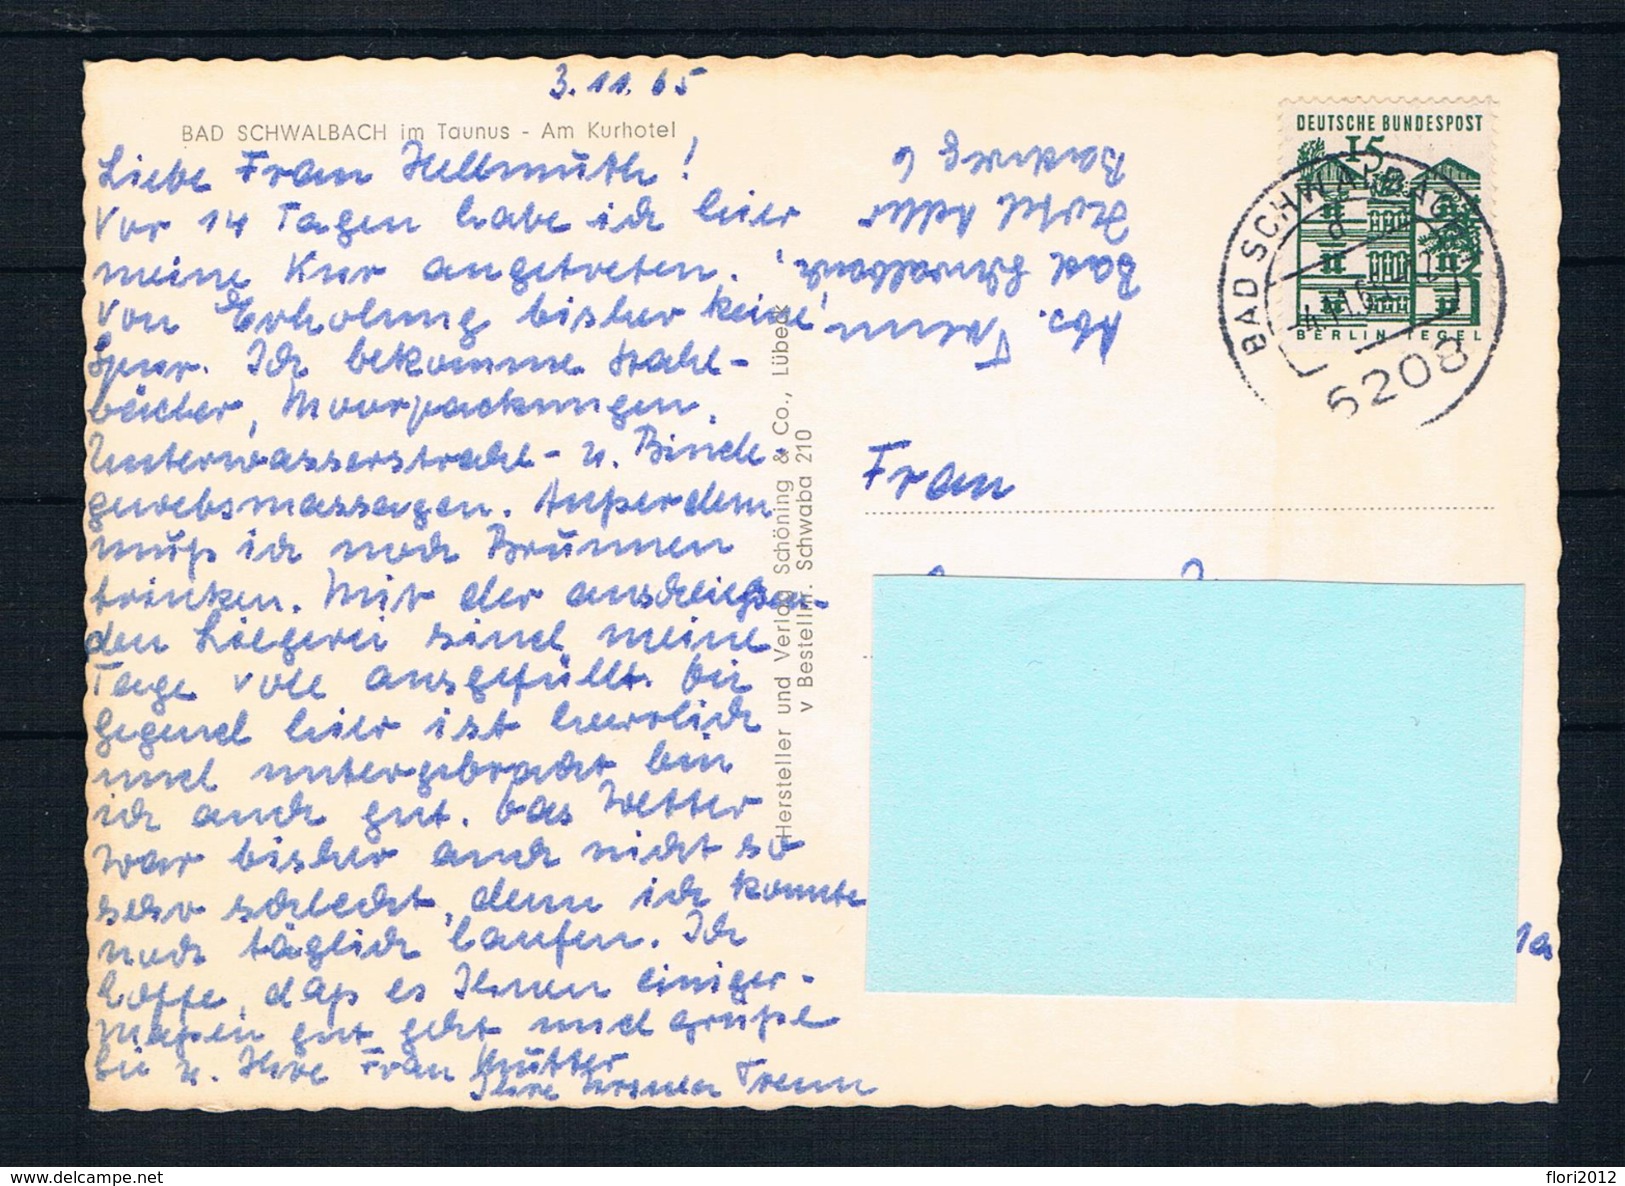 3.11.65
BAD SCHWALBACH im Taunus - Am Kurhotel
Liebe Frau Hellmuth!
Vor 14 Tagen habe ich hier
meine Kur angetreten.
Von Erholung bisher keine
Spur. Ich bekomme Stahl-
bäder, Moorpackungen,
Unterwasserstrahl- u. Binde
gewebsmassagen. Außerdem
muß ich noch Brunnen
trinken. Mit der anschließen-
den Liegerei sind meine
Tage voll ausgefüllt. Die
Gegend hier ist herrlich
und untergebracht bin
ich auch gut. Das Wetter
war bisher auch nicht so
sehr schlecht, denn ich konnte
noch täglich laufen. Ich
hoffe, daß es Ihnen einiger-
maßen gut geht und grüße
Sie u. Ihre Frau Mutter
Ihre Ursula Treun
Hersteller und Verlag Schöning & Co., Lübeck
v Bestellnr. Schwaba 210
Abs. Treun
Bad Schwalbach,
Hotel Adler
Badweg 6
DEUTSCHE BUNDESPOST
15
BERLIN TEGEL
BAD SCHWALBACH
-4.11.65
6208
Frau
1a
flori2012